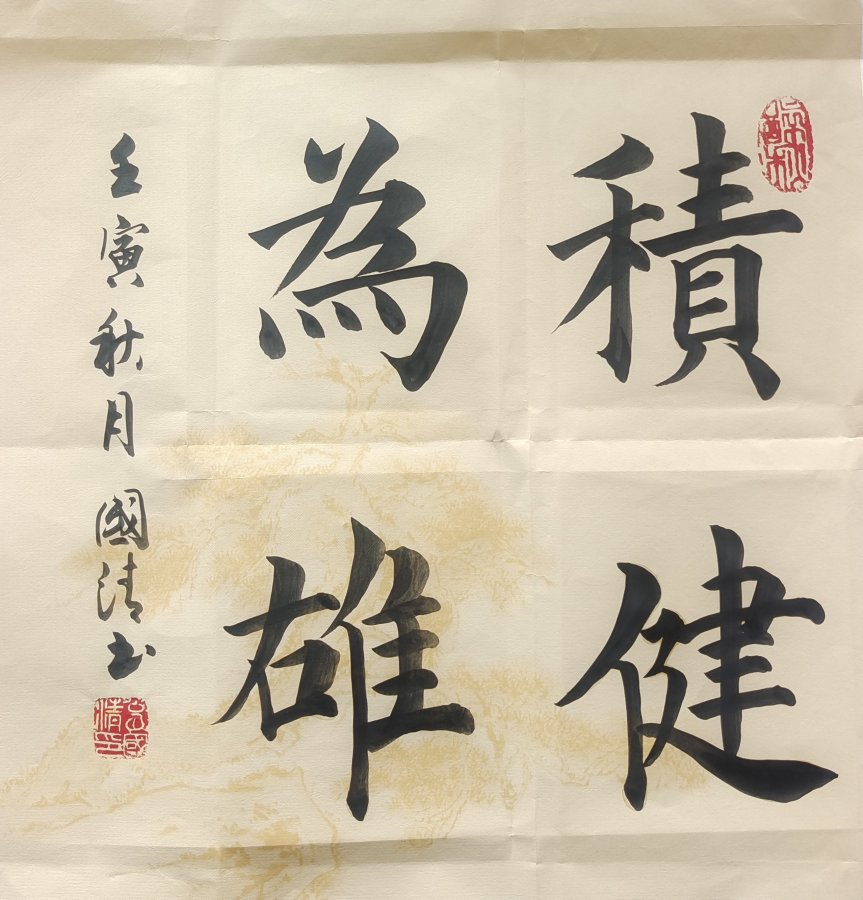 積健
為雄
壬寅秋月國清书